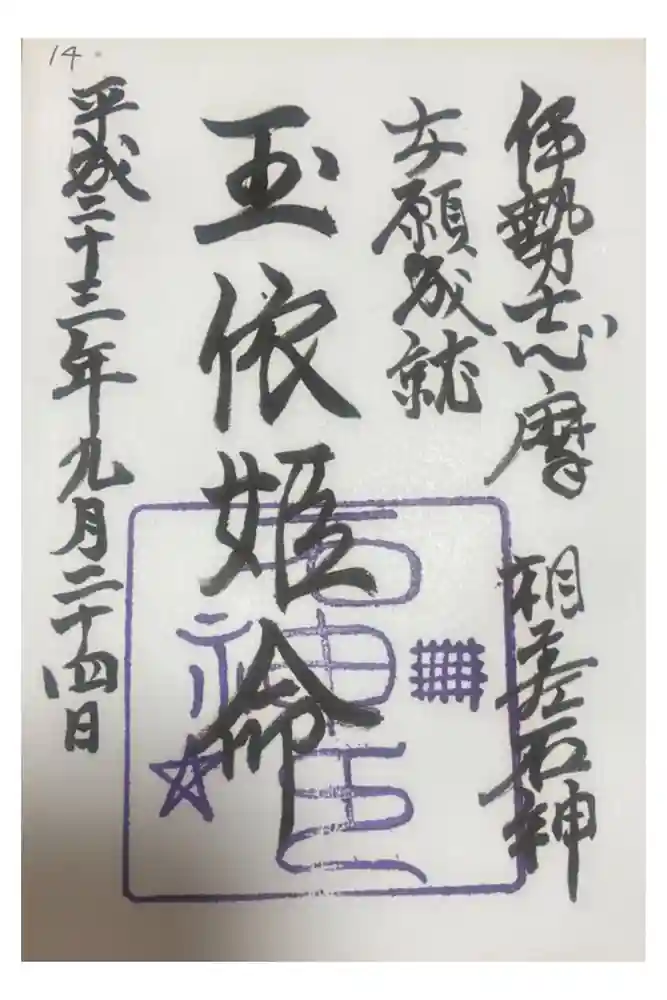 14.
伊勢志摩 相差石神
女願成就
玉依姫命
平成二十三年九月二十四日
石神